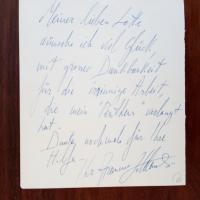 Meiner lieben Lotte
wünsche ich viel Glück,
mit grosser Dankbarkeit
für die Arbeit,
die mein "Pentheus" verlangt
hat.
Danke, nochmals für Ihre
Hilfe.
Ihr